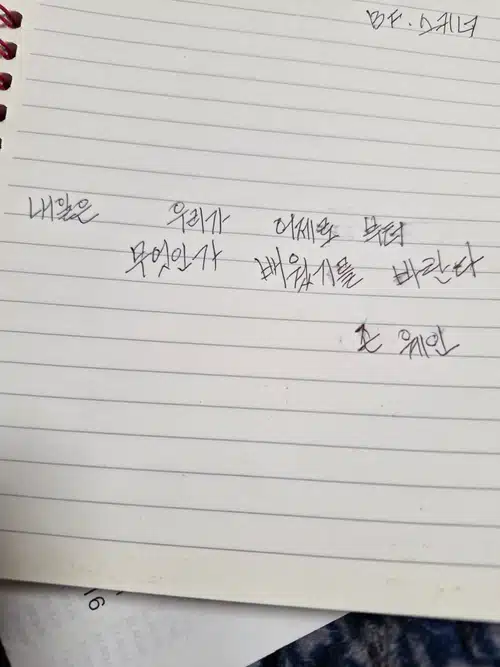 B.F. 스키너
내일은 우리가 어제로 부터
무엇인가 배웠기를 바란다
존 웨인
16